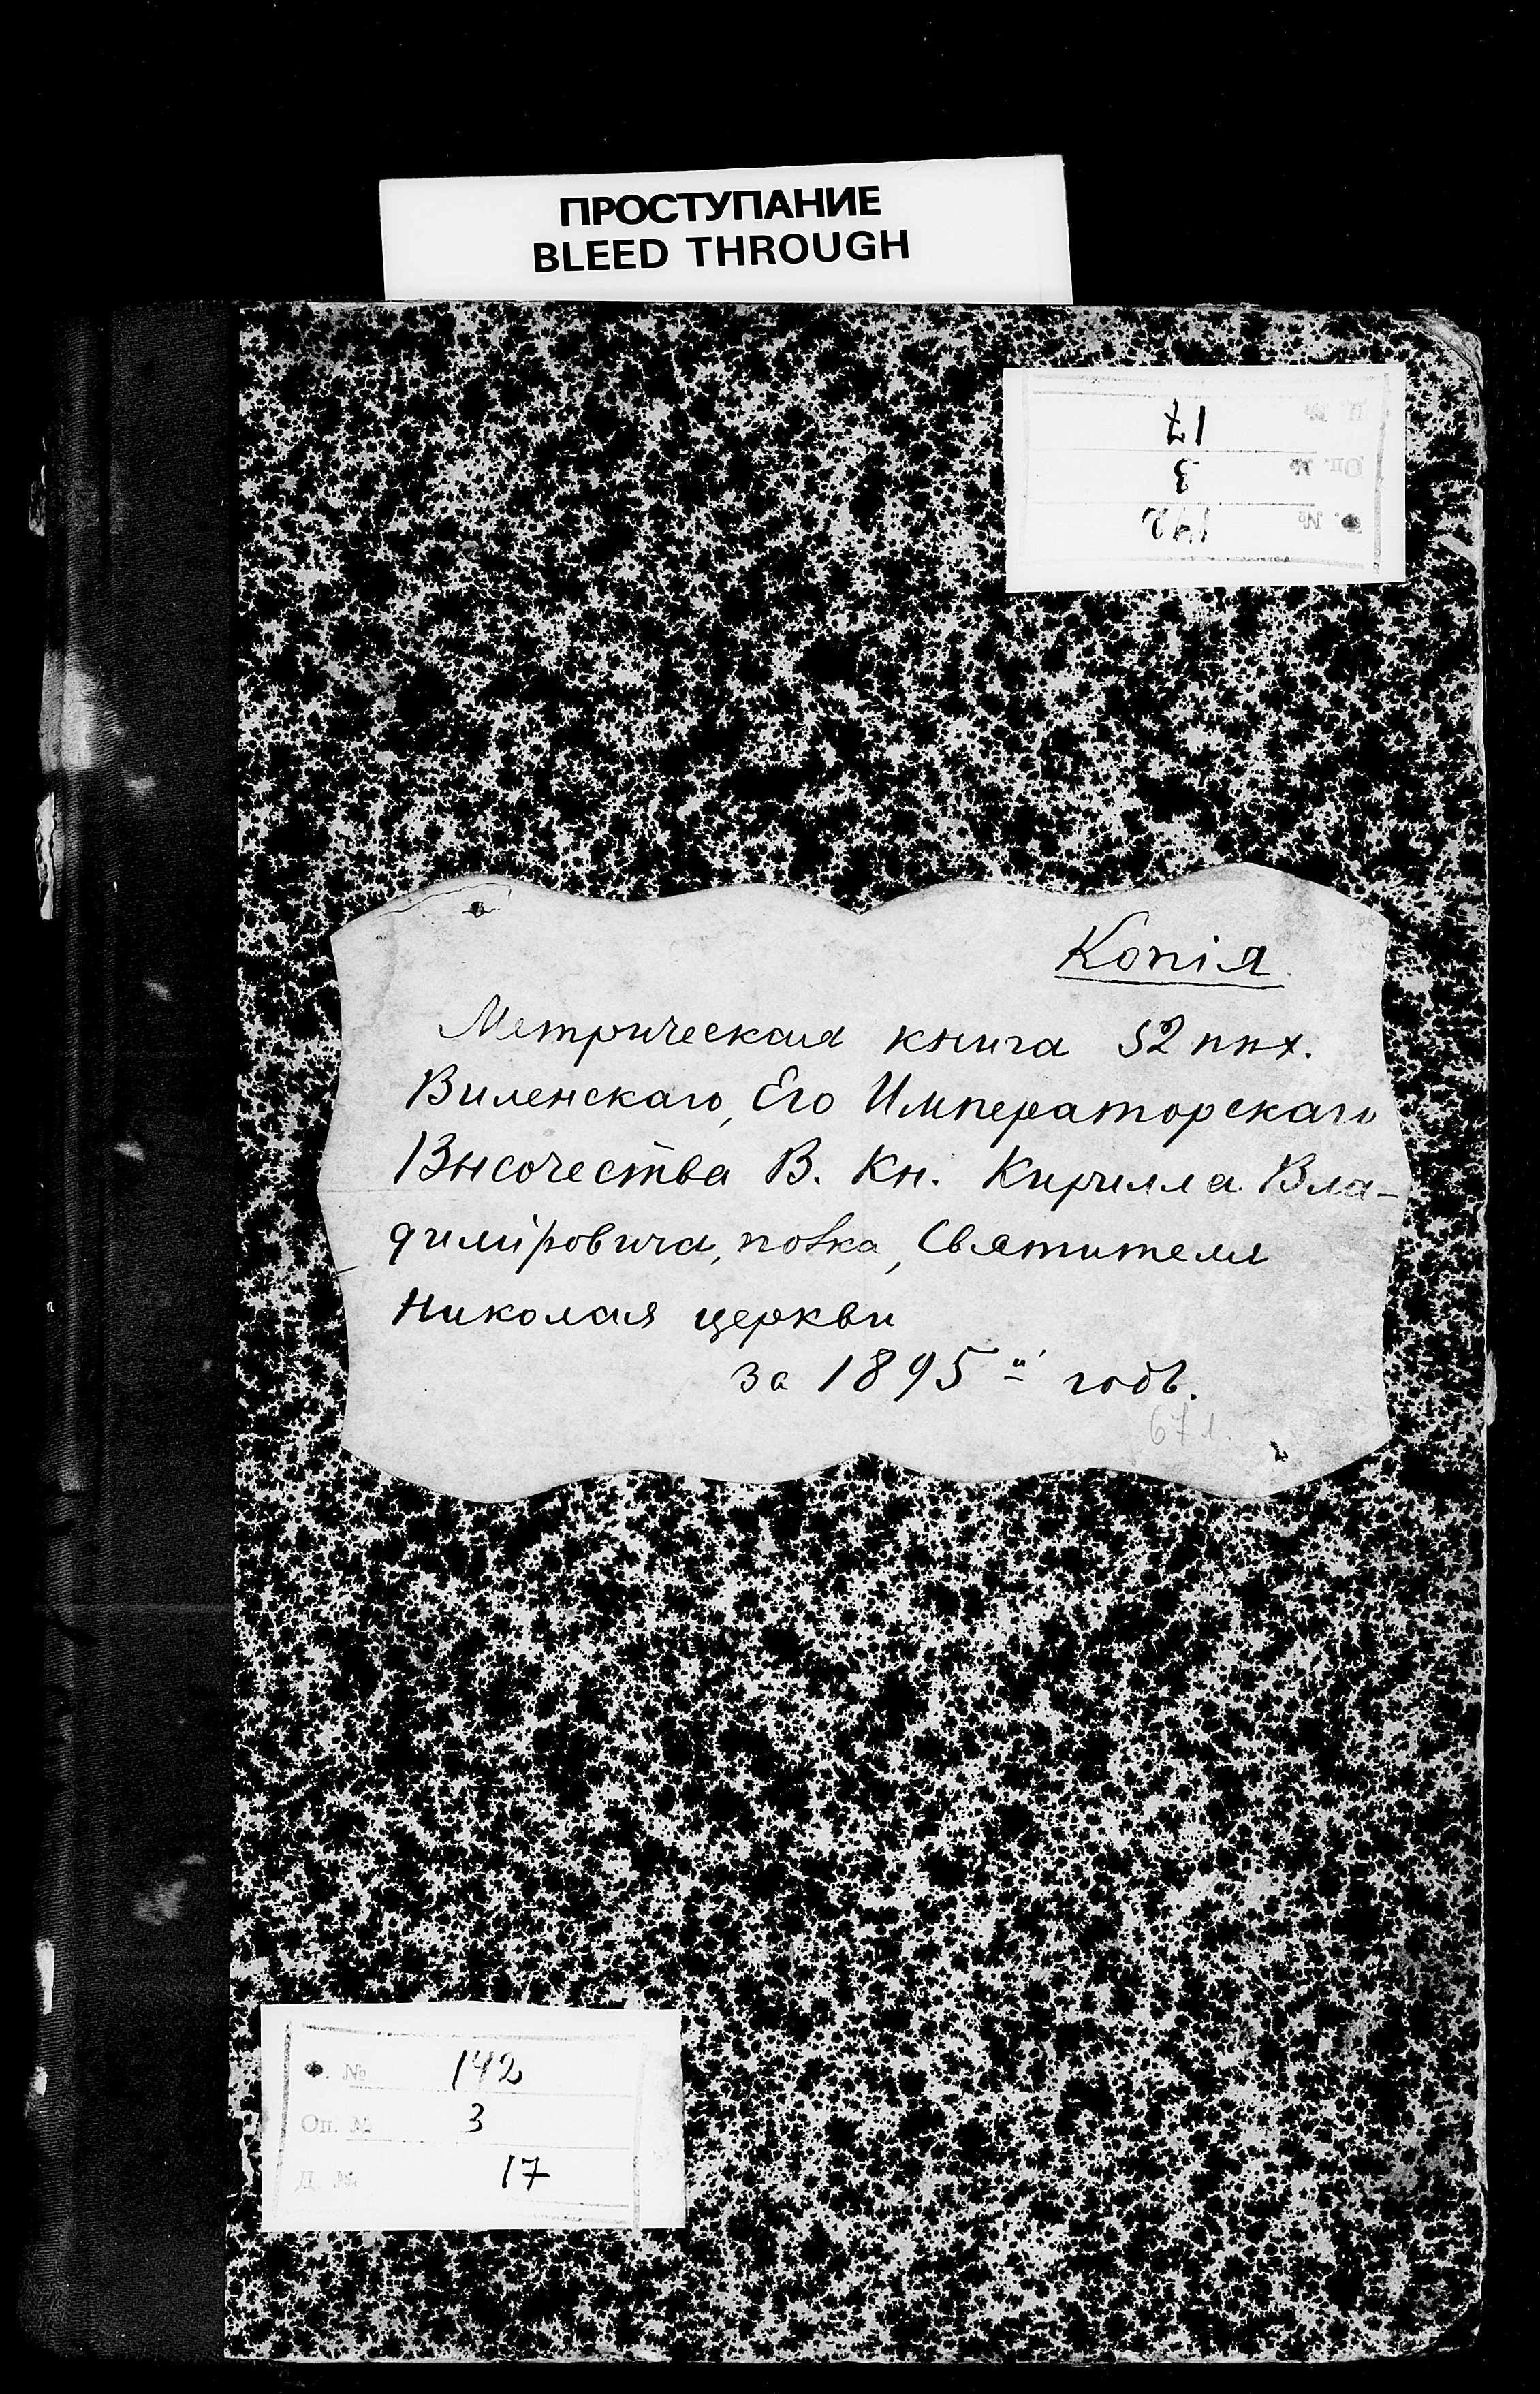 ПРОСТУПАНИЕ
BLEED THROUGH
Д. № 17
Оп. № 3
Ф. № 142
Копія
Метрическая книга 52 пѣх.
Виленскаго, Его Императорскаго
Высочества В. Кн. Кирилла Вла-
диміровича, полка, Святителя
Николая церкви
за 1895й годъ.
67 л.
Ф. № 142
Оп. № 3
Д. № 17